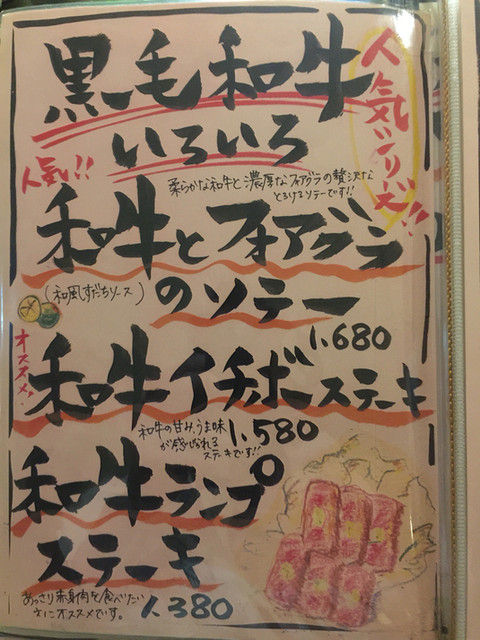 黒毛和牛
いろいろ
人気シリーズ!!
人気!!
柔らかな和牛と濃厚なフォアグラの贅沢な
とろけるソテーです!!
和牛とフォアグラ
(和風すだちソース)
のソテー
1,680
オススメ!
和牛イチボステーキ
和牛の甘み、うま味
が感じられる
ステーキです!!
1,580
和牛ランプ
ステーキ
あっさり赤身肉を食べたい
方にオススメです。
1,380